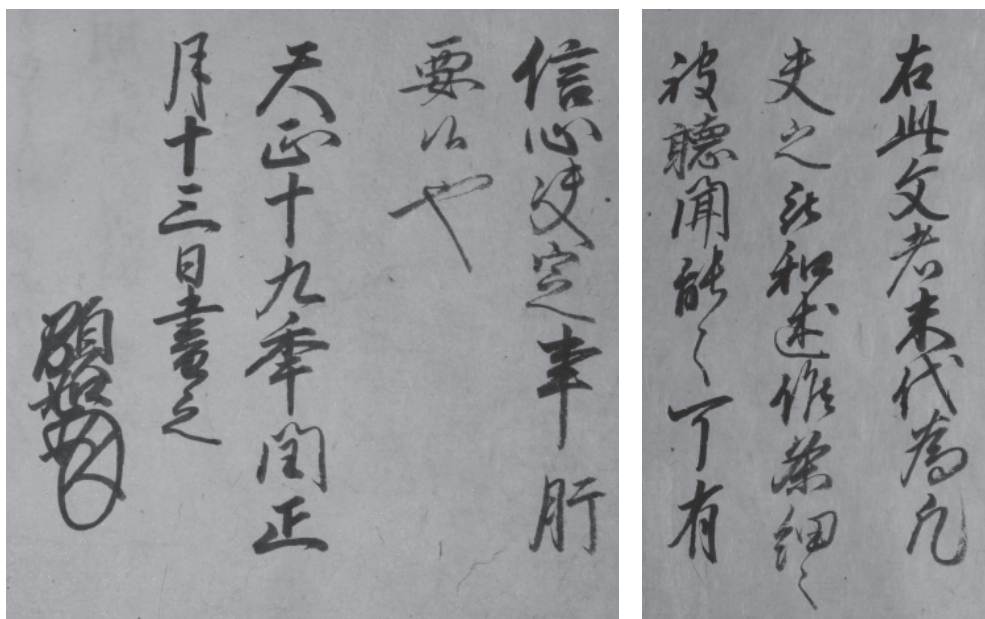 右此文者末代為凡
夫之和述作条細々
被聴聞能々可有
信心決定事肝
要候也
天正十九季閏正
月十三日書之
顕如